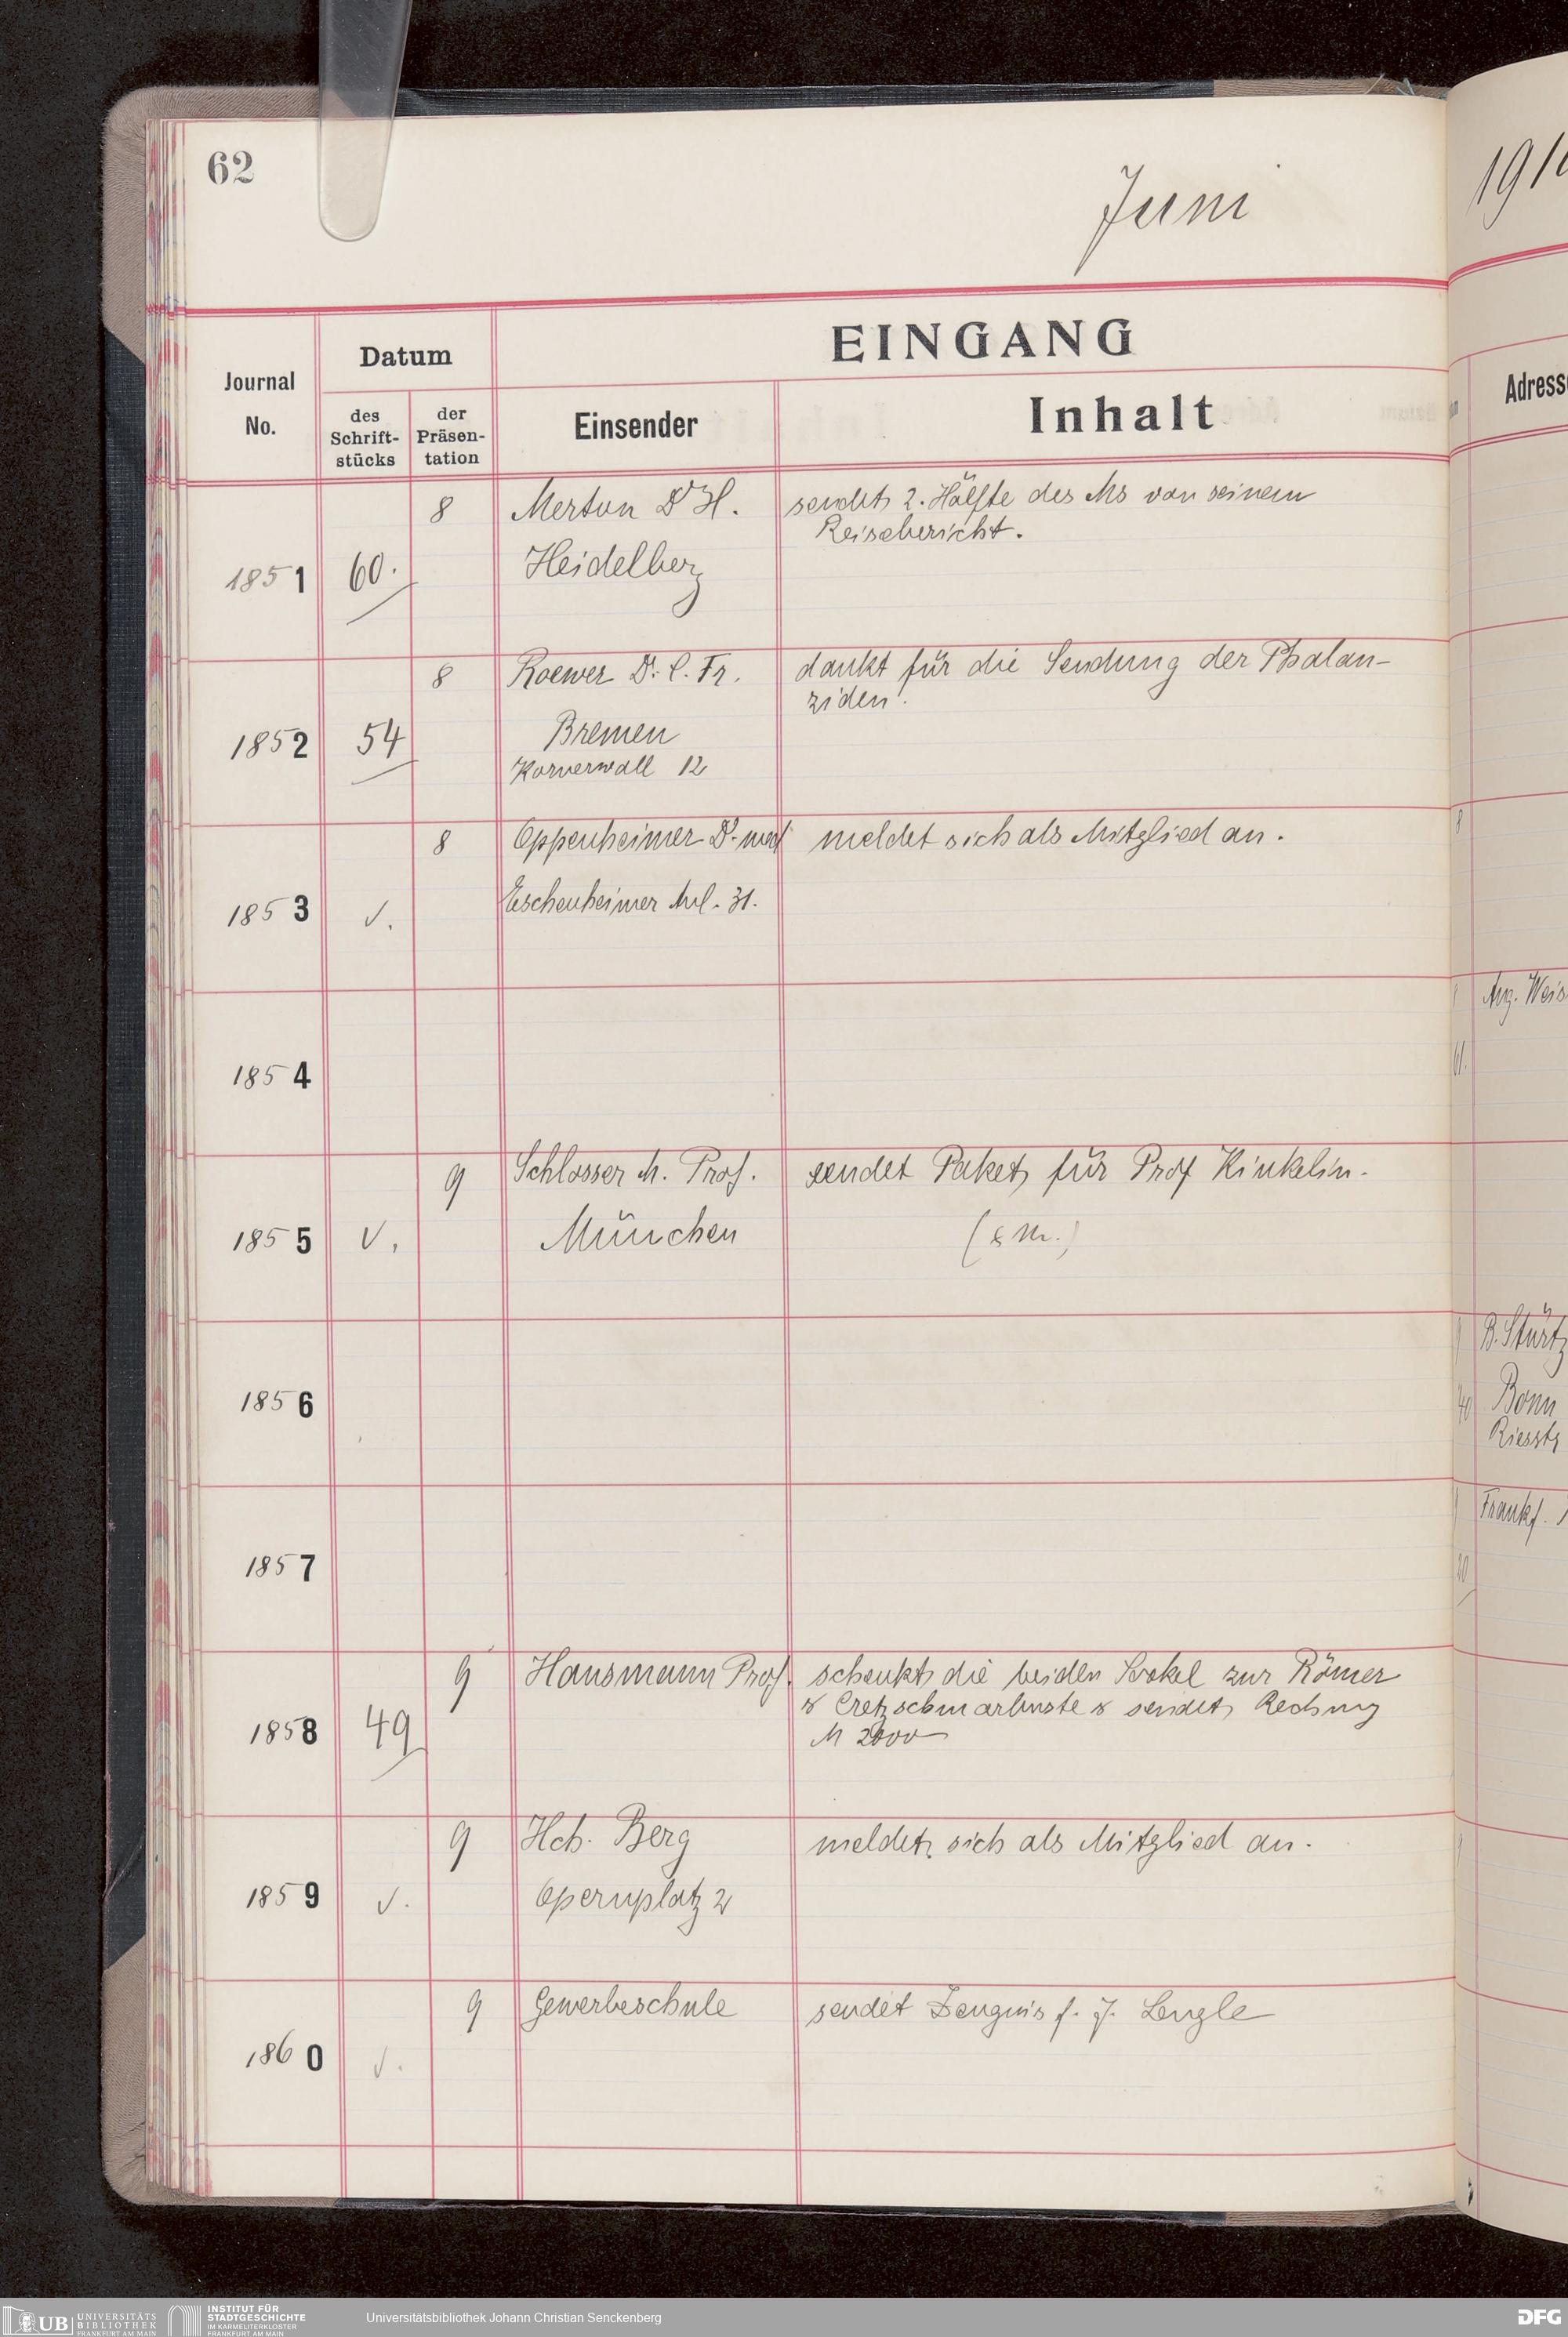 62
Juni
191
EINGANG
Journal
No.
Datum
des
Schrift-
stücks
der
Präsen-
tation
Einsender
Inhalt
Adress
1851
60.
8
Merton Dr H.
Heidelberg
sendet 2. Hälfte des Ms von seinem
Reisebericht.
1852
54
8
Roewer Dr. C. Fr.
Bremen
Kornerwall 12
dankt für die Sendung der Phalan-
ziden.
1853
v.
8
Oppenheimer Dr. med
Eschenheimer Anl. 31.
meldet sich als Mitglied an.
8
1854
Aug. Weis
61.
1855
v.
9
Schlosser M. Prof.
München
sendet Paket für Prof Kinkelin.
1856
B. Stürtz
Bonn
40
Riesstr
1857
Frankf.
20
1858
49
9
Hausmann Prof.
schenkt die beiden Sockel zur Römer
& Cretzschmarbüste & sendet Rechnung
M 2000
1859
v.
9
Hch. Berg
Opernplatz 2
meldet sich als Mitglied an.
1860
v.
9
Gewerbeschule
sendet Zeugnis f. J. Lengle
UB
UNIVERSITÄTS
BIBLIOTHEK
FRANKFURT AM MAIN
INSTITUT FÜR
STADTGESCHICHTE
IM KARMELITERKLOSTER
FRANKFURT AM MAIN
Universitätsbibliothek Johann Christian Senckenberg
DFG